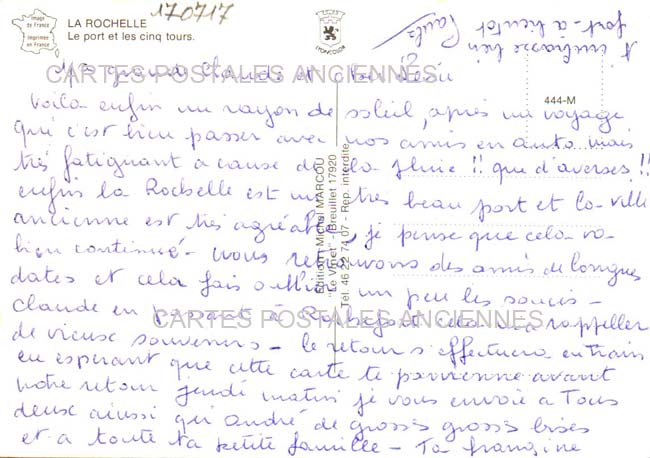 170717
Image de France
Imprimée en France
LA ROCHELLE
Le port et les cinq tours.
LYONCOLOR
t'embrasse bien
fort - à bientôt
444-M
CARTES POSTALES ANCIENNES
Voilà enfin un rayon de soleil, après un voyage
qui c'est bien passer avec nos amis en auto mais
très fatiguant a cause de la pluie !! que d'averses !!
enfin la Rochelle est un très beau port et la ville
ancienne est très agréable, je pense que cela va
bien continué - nous retrouvons des amis de longues
dates et cela fais oublier un peu les soucis -
claude en passant à Rochefort cela va rappeller
CARTES POSTALES ANCIENNES
de vieux souvenirs - le retour s'effectuera en train
en esperant que cette carte te parvienne avant
notre retour jeudi matin je vous envoie a Tous
deux ainsi qu'andré de grosses grosses bises
et a toute ta petite famille - Ta francine
Editions Michel MARCOU
"Le Vimet" - Breuillet 17920
Tél. 46 22 74 07 - Rep. interdite